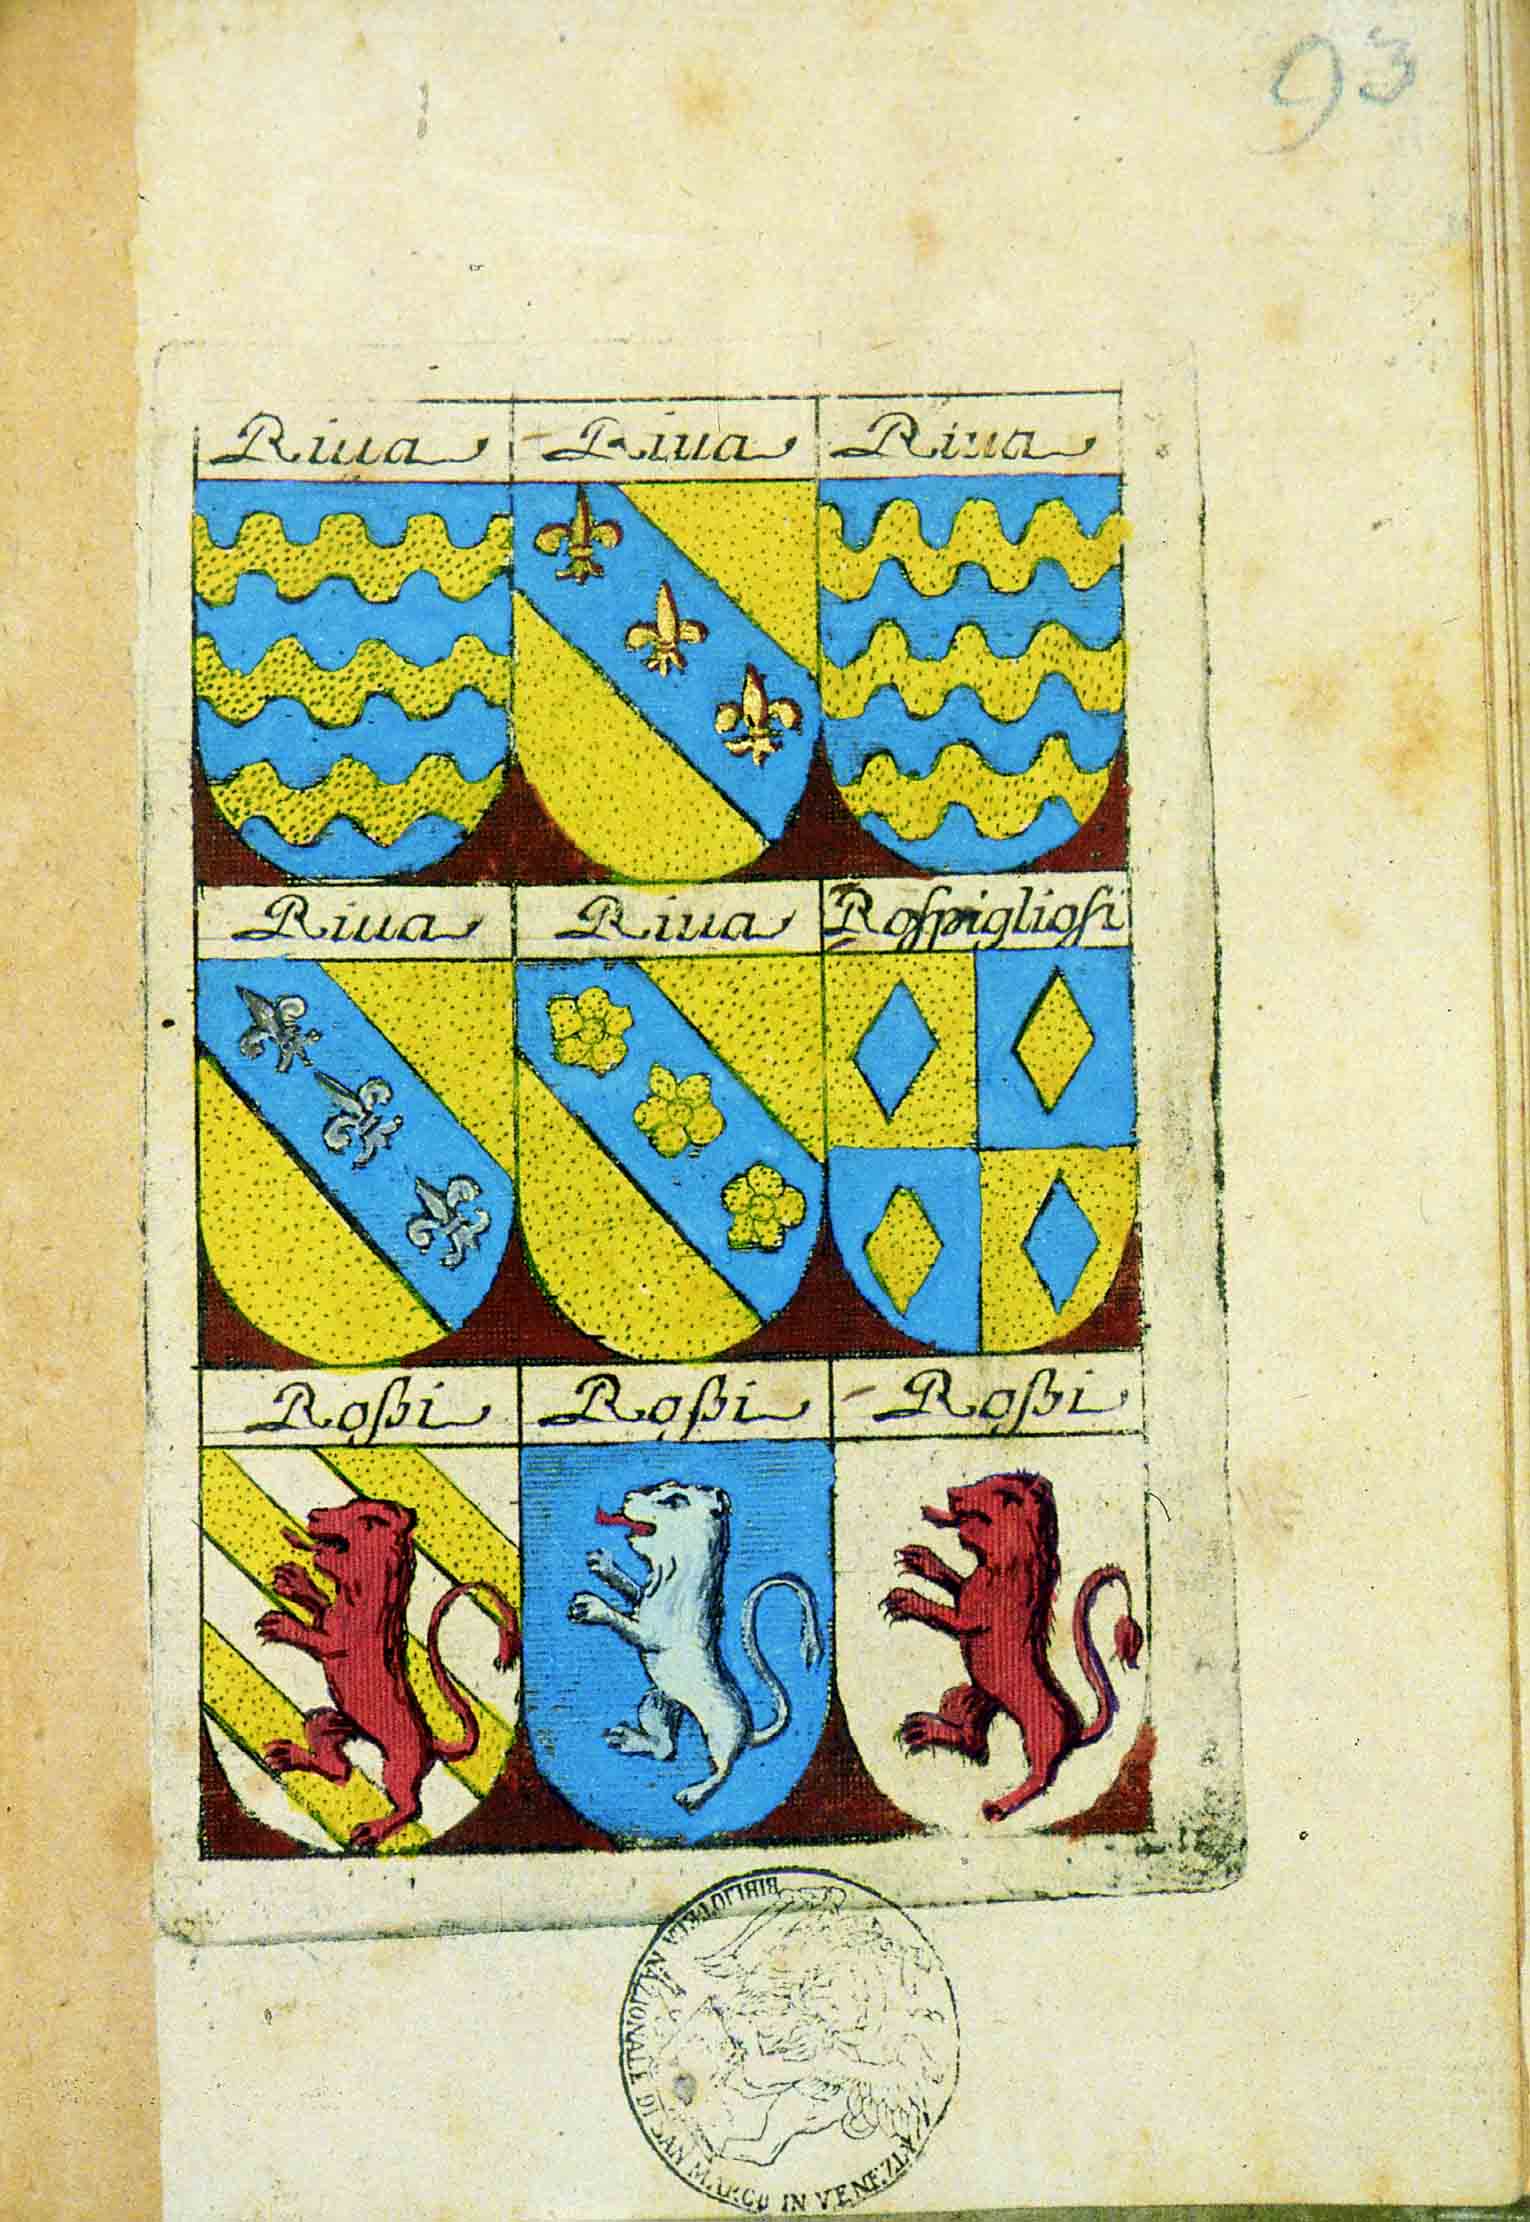 93
Riua Riua Riua
Riua Riua Roſpiglioſi
Roßi Roßi Roßi
BIBLIOTECA NAZIONALE DI SAN MARCO IN VENEZIA